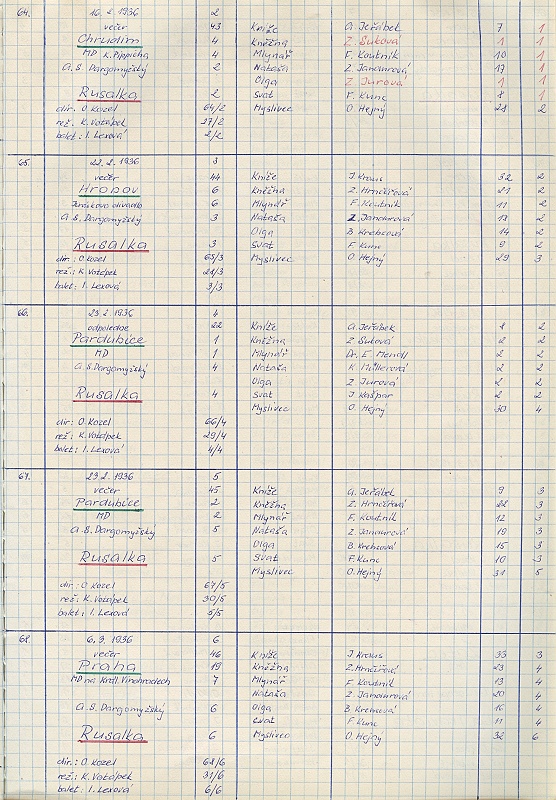 64. 16. 2. 1936 2
večer 43 Kníže A. Jeřábek 7 1
Chrudim 4 Kněžna Z. Suková 1 1
MD K. Pippicha 4 Mlynář F. Koutník 10 1
A. S. Dargomyžský 2 Nataša Z. Janourová 17 1
Olga Z. Jurová 1 1
Rusalka 2 Svat F. Kunc 8 1
dir.: O. Kozel 64/2 Myslivec O. Hejný 28 2
rež.: K. Votápek 27/2
balet: I. Lexová 2/2
65. 22. 2. 1936 3
večer 44 Kníže J. Kraus 32 2
Hronov 6 Kněžna Z. Hrnčířová 21 2
Jiráskovo divadlo 6 Mlynář F. Koutník 11 2
A. S. Dargomyžský 3 Nataša Z. Janourová 18 2
Olga B. Krebsová 14 2
Rusalka 3 Svat F. Kunc 9 2
dir.: O. Kozel 65/3 Myslivec O. Hejný 29 3
rež.: K. Votápek 28/3
balet: I. Lexová 3/3
66. 23. 2. 1936 4
odpoledne 22 Kníže A. Jeřábek 8 2
Pardubice 1 Kněžna Z. Suková 2 2
MD 1 Mlynář Dr. E. Mendl 2 2
A. S. Dargomyžský 4 Nataša K. Müllerová 2 2
Olga Z. Jurová 2 2
Rusalka 4 Svat J. Kašpar 2 2
Myslivec O. Hejný 30 4
dir.: O. Kozel 66/4
rež.: K. Votápek 29/4
balet: I. Lexová 4/4
67. 23. 2. 1936 5
večer 45 Kníže A. Jeřábek 9 3
Pardubice 2 Kněžna Z. Hrnčířová 22 3
MD 2 Mlynář F. Koutník 12 3
A. S. Dargomyžský 5 Nataša Z. Janourová 19 3
Olga B. Krebsová 15 3
Rusalka 5 Svat F. Kunc 10 3
Myslivec O. Hejný 31 5
dir.: O. Kozel 67/5
rež.: K. Votápek 30/5
balet: I. Lexová 5/5
68. 6. 3. 1936 6
večer 46 Kníže J. Kraus 33 3
Praha 19 Kněžna Z. Hrnčířová 23 4
MD na Král. Vinohradech 7 Mlynář F. Koutník 13 4
Nataša Z. Janourová 20 4
A. S. Dargomyžský 6 Olga B. Krebsová 16 4
Svat F. Kunc 11 4
Rusalka 6 Myslivec O. Hejný 32 6
dir.: O. Kozel 68/6
rež.: K. Votápek 31/6
balet: I. Lexová 6/6